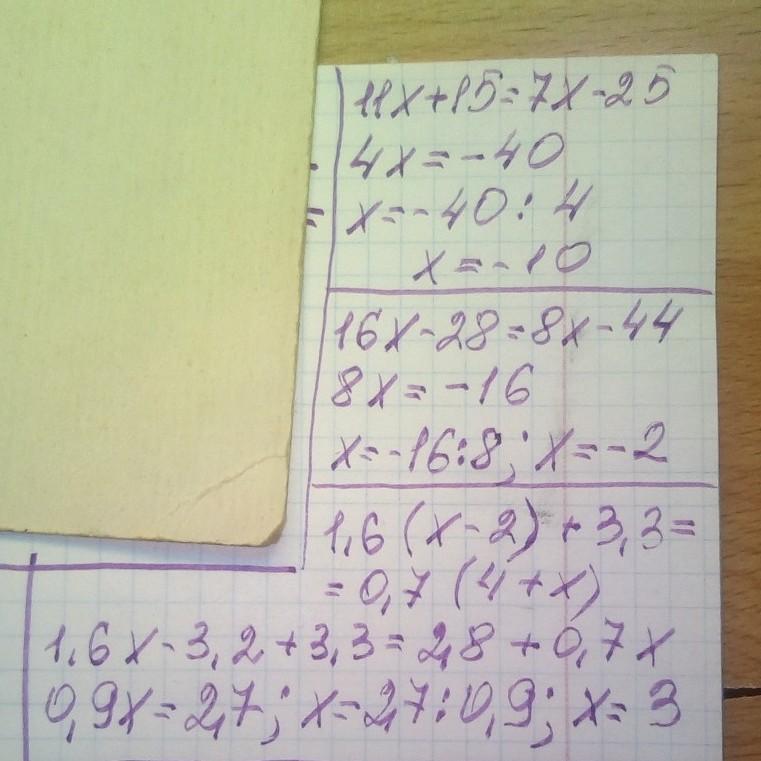 11x+15=7x-25
4x=-40
x=-40:4
x=-10
16x-28=8x-44
8x=-16
x=-16:8; x=-2
1,6(x-2)+3,3=
=0,7(4+x)
1,6x-3,2+3,3=2,8+0,7x
0,9x=2,7; x=2,7:0,9; x=3